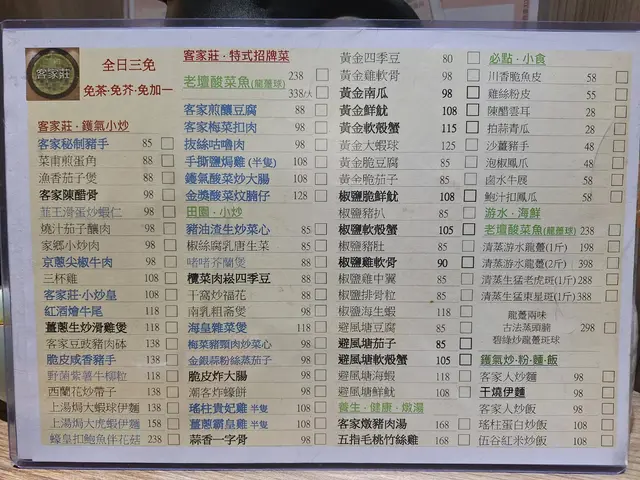 客家莊
全日三免
免茶·免芥·免加一
客家莊·鑊氣小炒
客家秘制豬手 85
菜甫煎蛋角 88
漁香茄子煲 88
客家陳醋骨 98
韮王滑蛋炒蝦仁 98
燒汁茄子釀肉 98
家鄉小炒肉 98
京蔥尖椒牛肉 98
三杯雞 108
客家莊·小炒皇 108
紅酒燴牛尾 118
薑蔥生炒滑雞煲 118
客家豆豉豬肉砵 138
脆皮咸香豬手 138
野菌紫薯牛柳粒 118
西蘭花炒帶子 138
上湯焗大蝦球伊麵 138
上湯焗大虎蝦伊麵 158
蠔皇扣鮑魚伴花菇 238
客家莊·特式招牌菜
老壇酸菜魚(龍躉球) 238
338/大
客家煎釀豆腐 88
客家梅菜扣肉 98
拔絲咕嚕肉 98
手撕鹽焗雞(半隻) 108
鑊氣酸菜炒大腸 108
金獎酸菜炆腩仔 128
田園·小炒
豬油渣生炒菜心 85
椒絲腐乳唐生菜 85
啫啫芥蘭煲 88
欖菜肉崧四季豆 88
干窩炒福花 88
南乳粗斋煲 98
海皇雜菜煲 98
梅菜豬頸肉炒菜心 98
金銀蒜粉絲蒸茄子 98
脆皮炸大腸 98
潮客炸蠔餅 98
瑤柱貴妃雞 半隻 108
薑蔥霸皇雞 半隻 108
蒜香一字骨 98
黃金四季豆 80
黃金雞軟骨 98
黃金南瓜 98
黃金鮮魷 108
黃金軟殼蟹 115
黃金大蝦球 125
黃金脆豆腐 85
黃金脆茄子 85
椒鹽脆鮮魷 108
椒鹽豬扒 85
椒鹽軟殼蟹 105
椒鹽豬肚 85
椒鹽雞軟骨 90
椒鹽雞中翼 85
椒鹽排骨粒 85
椒鹽海生蝦 118
避風塘豆腐 85
避風塘茄子 85
避風塘軟殼蟹 105
避風塘海蝦 118
避風塘鮮魷 108
養生·健康·燉湯
客家燉豬肉湯 168
五指毛桃竹絲雞 168
必點·小食
川香脆魚皮 58
雞絲粉皮 55
陳醋雲耳 28
拍蒜青瓜 28
沙薑豬手 48
泡椒鳳爪 48
鹵水牛展 58
鮑汁扣鳳爪 58
游水·海鮮
老壇酸菜魚(龍躉球) 238
清蒸游水龍躉(1斤) 198
清蒸游水龍躉(2斤) 398
清蒸生猛老虎斑(1斤) 288
清蒸生猛東星斑(1斤) 388
龍躉兩味
古法蒸頭腩 298
碧綠炒龍躉斑球
鑊氣炒·粉·麵·飯
客家人炒麵 98
干燒伊麵 98
客家人炒飯 98
瑤柱蛋白炒飯 108
伍谷紅米炒飯 108